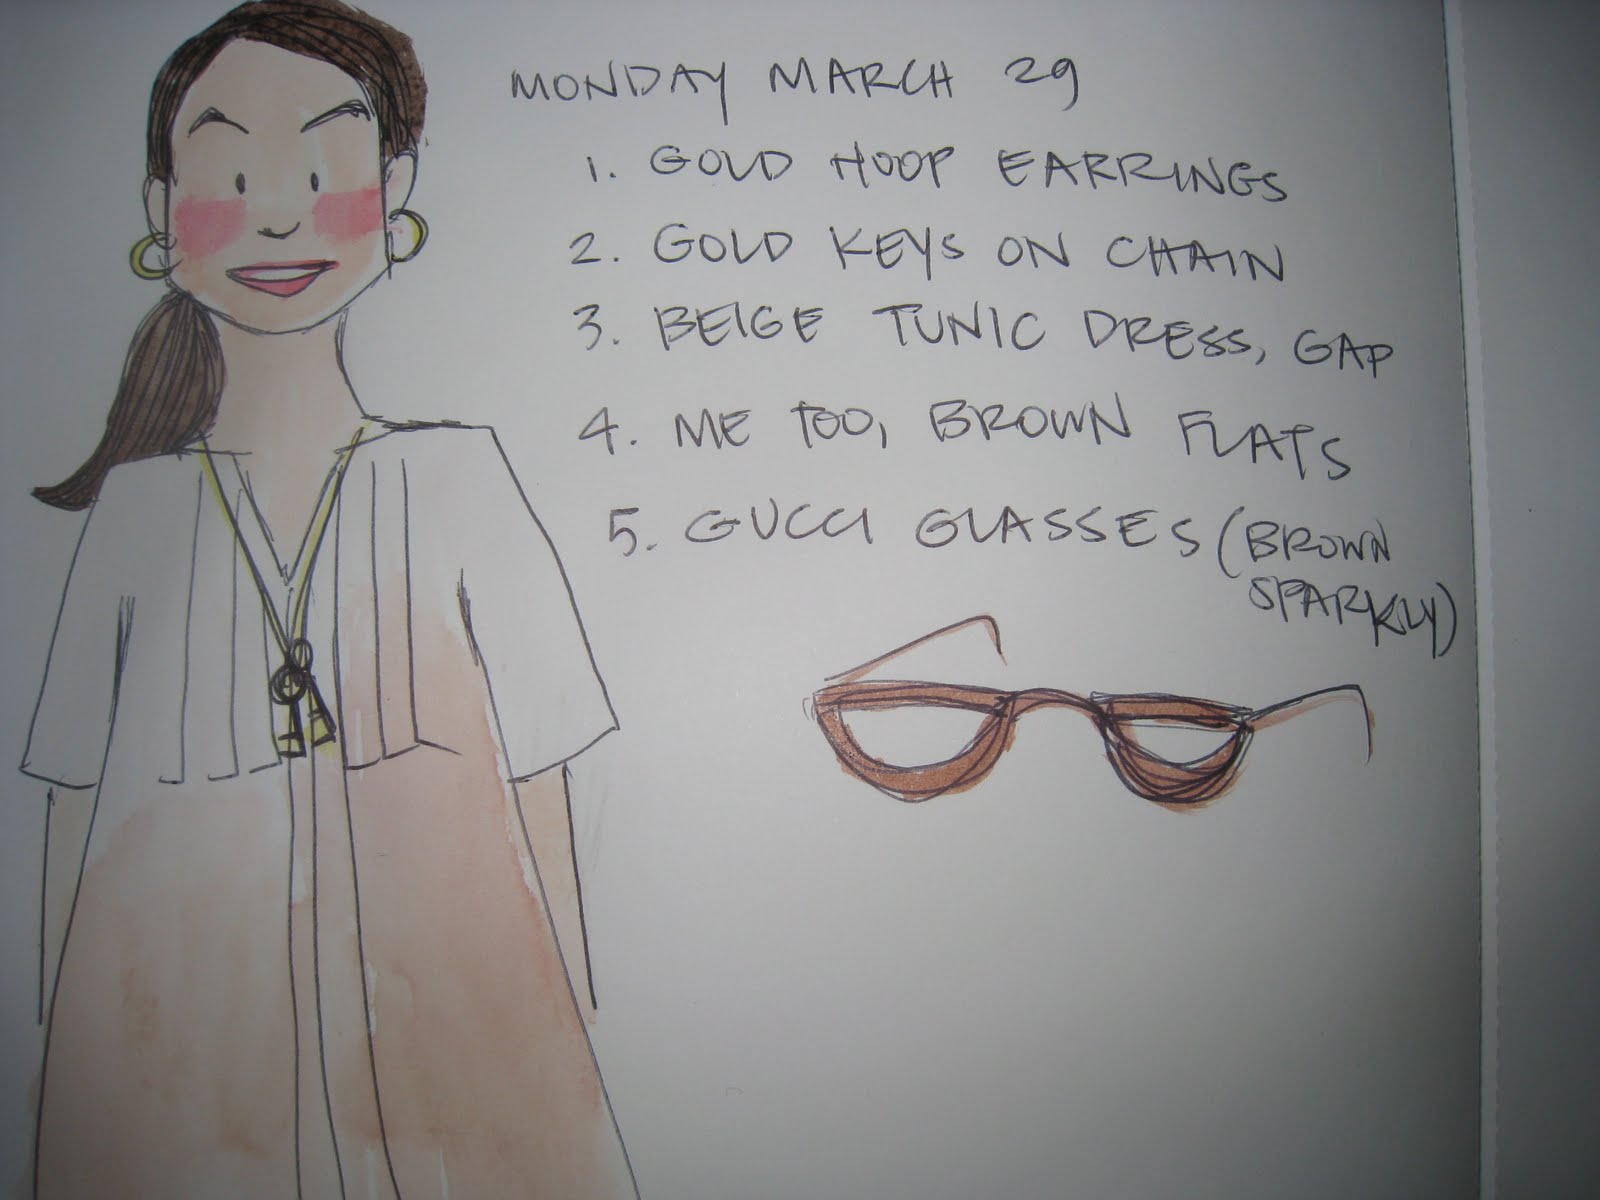 MONDAY MARCH 29
1. GOLD HOOP EARRINGS
2. GOLD KEYS ON CHAIN
3. BEIGE TUNIC DRESS, GAP
4. ME TOO, BROWN FLATS
5. GUCCI GLASSES (BROWN
SPARKLY)